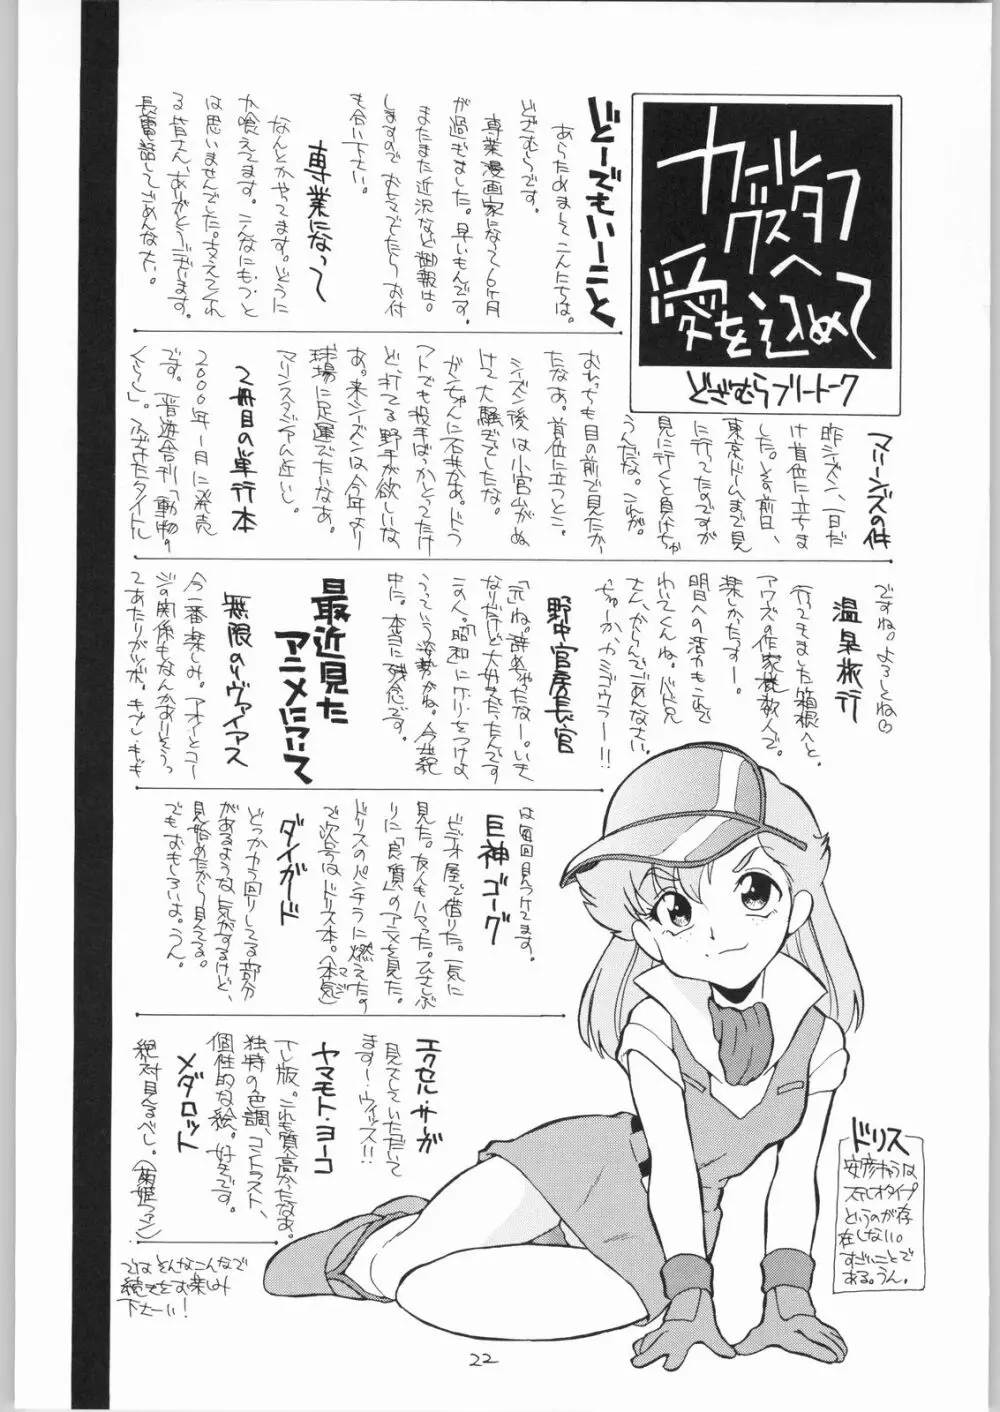 カール
グスタフへ
愛を込めて
どざむらフリートーク
どーでもいーこと
あらためまして こんにちは。
どざむらです。
専業漫画家になって6ヶ月
が過ぎました。早いもんです。
またまた近況など御報告
しますので おヒマでしたらお付
き合い下さい。
専業になって
なんとかやってます。どうに
か喰えてます。こんなにもつと
は思いませんでした。支えてくれ
る皆さん、ありがとうございます。
長電話してごめんなさい。
マリーンズの件
昨シーズン、一日だ
け首位に立ちま
した。その前日、
東京ドームまで見
に行ってたのですが
見に行くと負けちゃ
うんだな。これが。
おれっちも目の前で見たか
たなあ。首位に立つとこ。
シーズン後は小宮山がぬ
けて大騒ぎでしたな。
ガンちゃんに石井かあ。ドラ
フトでも投手ばっかとってたけ
ど、打てる野手が欲しいな
あ。来シーズンは今年より
球場に足運びたいなあ。
マリンスタジアムは近いし。
2冊目の単行本
2000年1月に発売
です。「晋遊舎刊「動物。
くらし」。ふざけたタイトル
ですね。よろしくね
温泉旅行
行ってきました箱根へと。
アワズの作家様数人で。
楽しかたっすー。
明日への活力もこれで
わいてくんね。バド兄
さん、からんでごめんなさい。
ちゅーか、カミデウラー!!
野中官房長官
「元」ね。辞めちゃたなー。いき
なりだけど大好きだったんです
この人。「昭和」にケリをつけよ
うっていう姿勢がね。今世紀
中に。本当に残念です。
最近見た
アニメについて
無限のリヴァイアス
今一番楽しみ。アオイとコー
ジの関係もなんかありそうっ
てあたりがツボ。キブレ・キブキ
は毎回見つけてます。
巨神ゴーグ
ビデオ屋で借りた。一気に
見た。友人もハマった。ひさしぶ
りに「良質」のアニメを見た。
ドリスのパンチラに燃えたの
で次号はドリス本。(本気)
マジ
ダイガード
どっか力が空回りしてる部分
があるような気がするけど、
見始めたから見てる。
でもおもしろいよ。うん。
エクセル・サーガ
見てていただいて
ます!ウィッス!!
ヤマモト・ヨーコ
TV版。これも質高かたなあ。
独特の色調、コントラスト、
個性的な絵。好きです。
メダロット
絶対見るべし。(菊姫ファン)
では そんなこんなで
続きをお楽しみ
下さーい!
ドリス
安彦キャラは
ステレオタイプ
というのが存
在しない。
すごいことで
ある。うん。
22